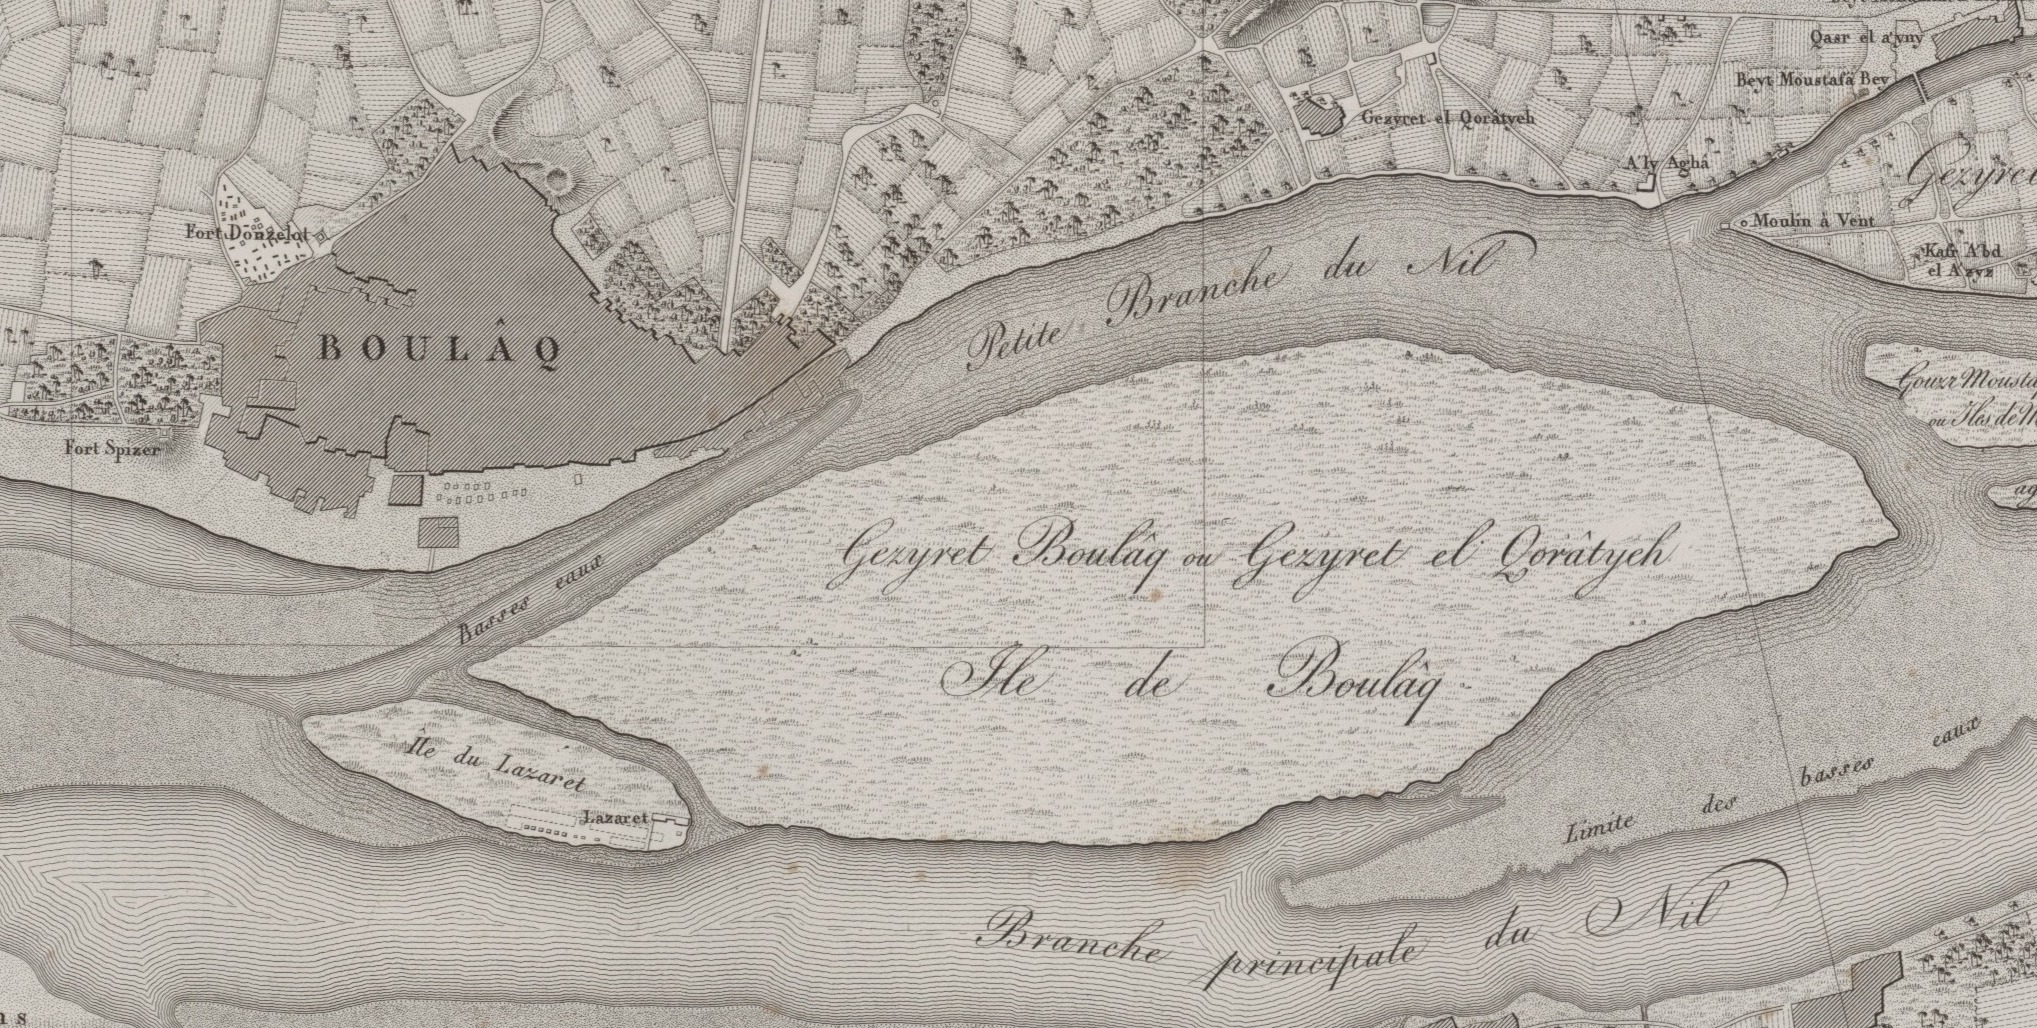 Qasr el a'yny
Beyt Moustafä Bey
Gezyret el Qorâtyeh
A'ly Aghâ
Gezyret
Moulin à Vent
Fort Donzelot
Kafr A'bd
el A'zyz
Petite Branche du Nil
BOULÂQ
Gouzr Mousta
ou Iles de M
Fort Spizer
Gezyret Boulâq ou Gezyret el Qorâtyeh
Basses eaux
Ile de Boulâq
Île du Lazaret
Lazaret
Limite des basses eaux
Branche principale du Nil